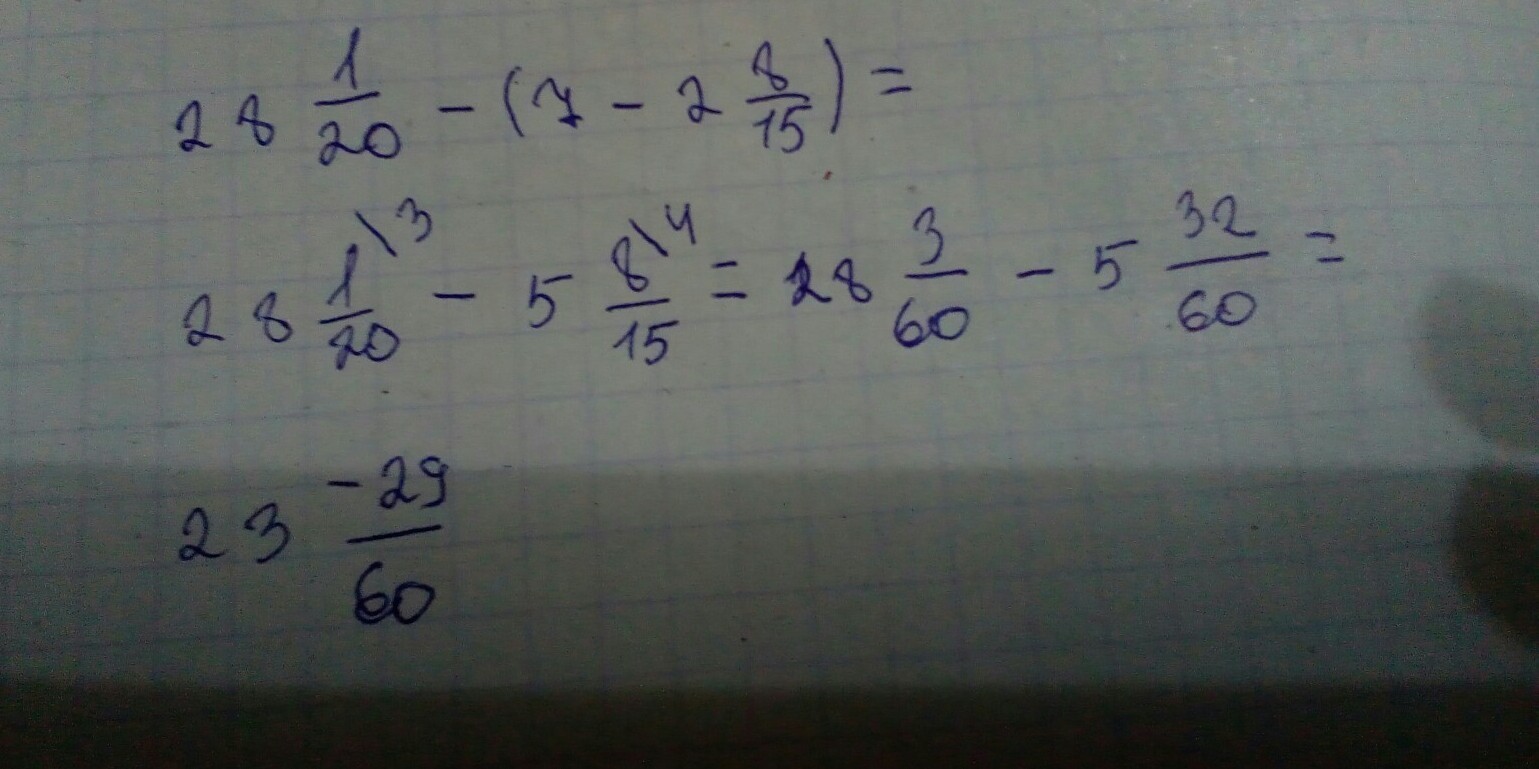 28 1/20 - (7 - 2 8/15) =
28 1\3/20 - 5 8\4/15 = 28 3/60 - 5 32/60 =
23 -29/60